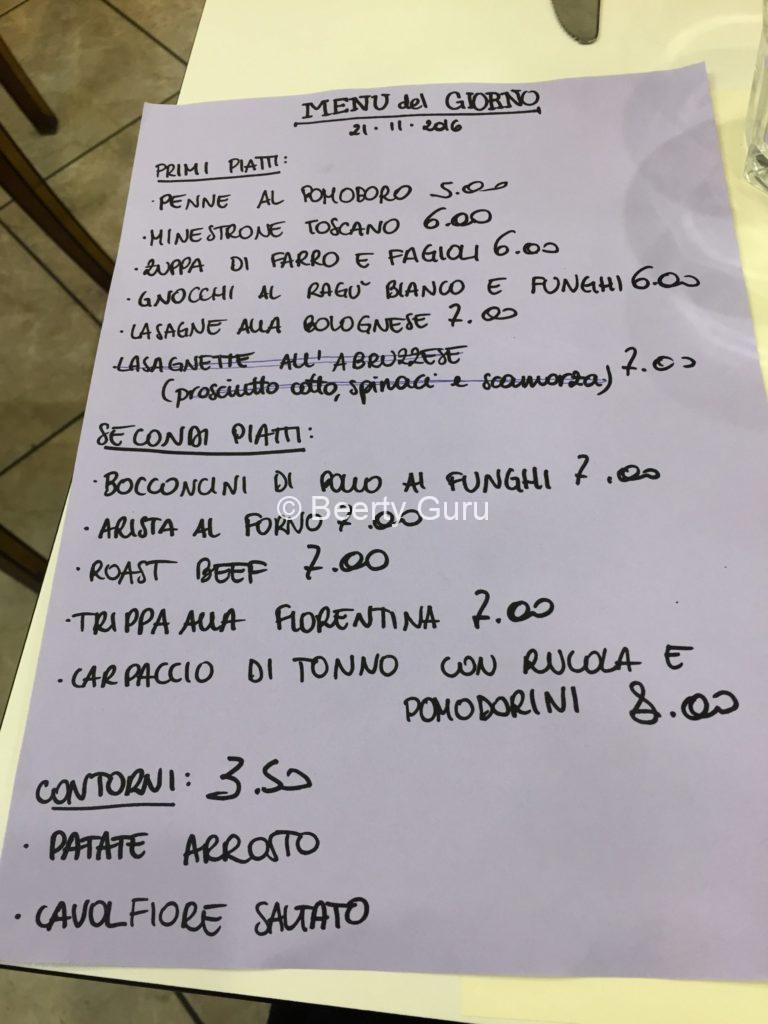 MENU del GIORNO
21·11·2016
PRIMI PIATTI:
·PENNE AL POMODORO 5.00
·MINESTRONE TOSCANO 6.00
·ZUPPA DI FARRO E FAGIOLI 6.00
·GNOCCHI AL RAGU' BIANCO E FUNGHI 6.00
·LASAGNE ALLA BOLOGNESE 7.00
·LASAGNETTE ALL'ABRUZZESE
(prosciutto cotto, spinaci e scamorza) 7.00
SECONDI PIATTI:
·BOCCONCINI DI POLLO AI FUNGHI 7.00
© Beerty Guru
·ARISTA AL FORNO 7.00
·ROAST BEEF 7.00
·TRIPPA ALLA FIORENTINA 7.00
·CARPACCIO DI TONNO CON RUCOLA E
POMODORINI 8.00
CONTORNI: 3.50
·PATATE ARROSTO
·CAVOLFIORE SALTATO